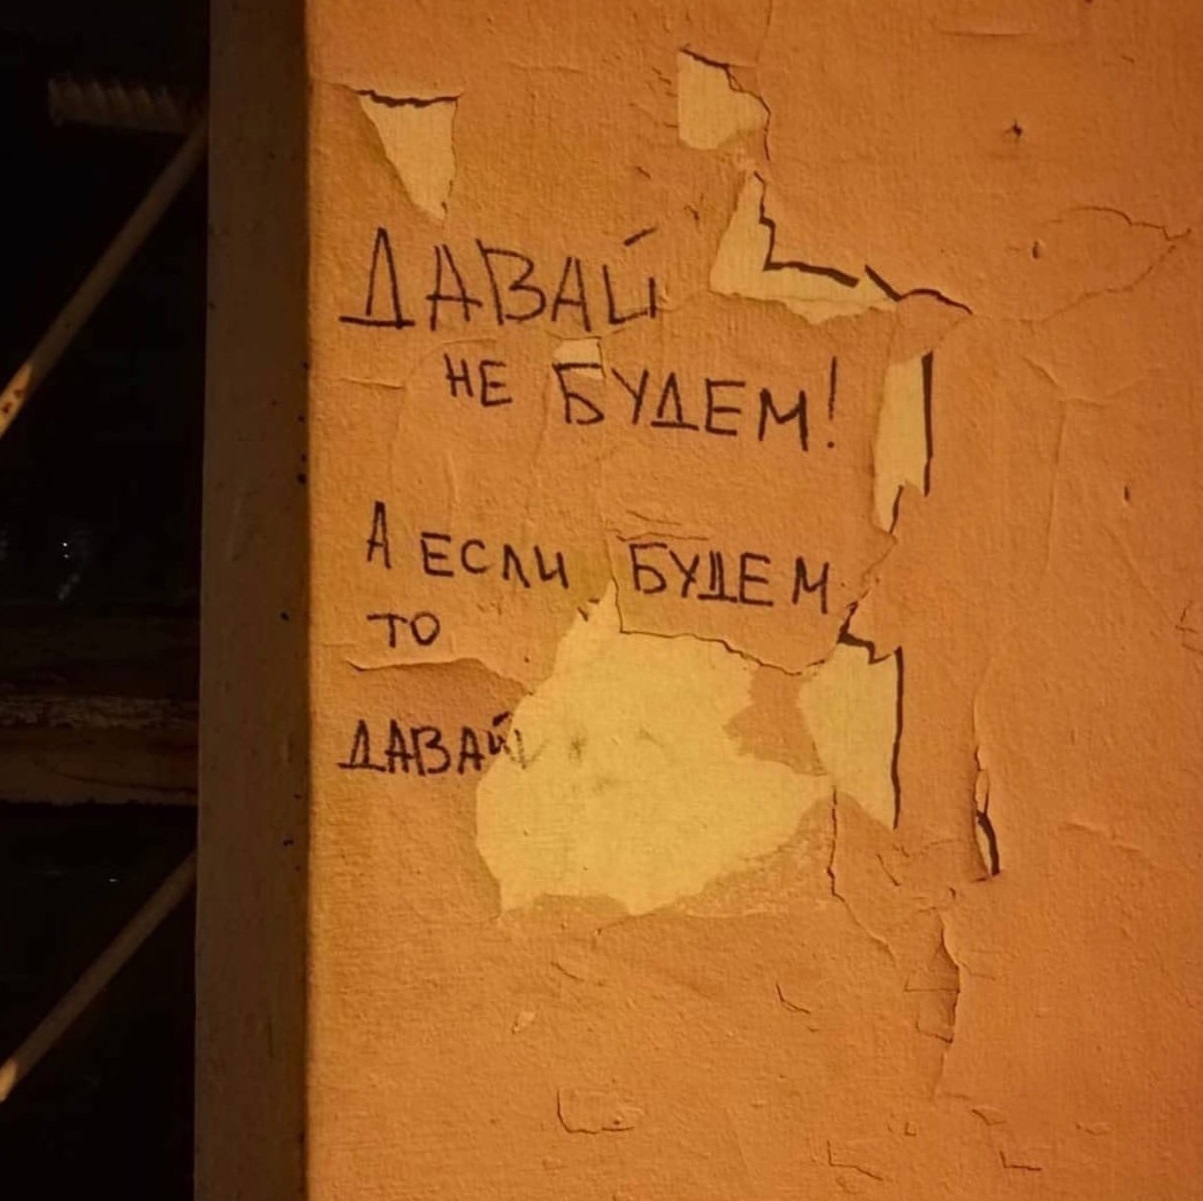 ДАВАЙ
НЕ БУДЕМ!
А ЕСЛИ БУДЕМ
ТО
ДАВАЙ